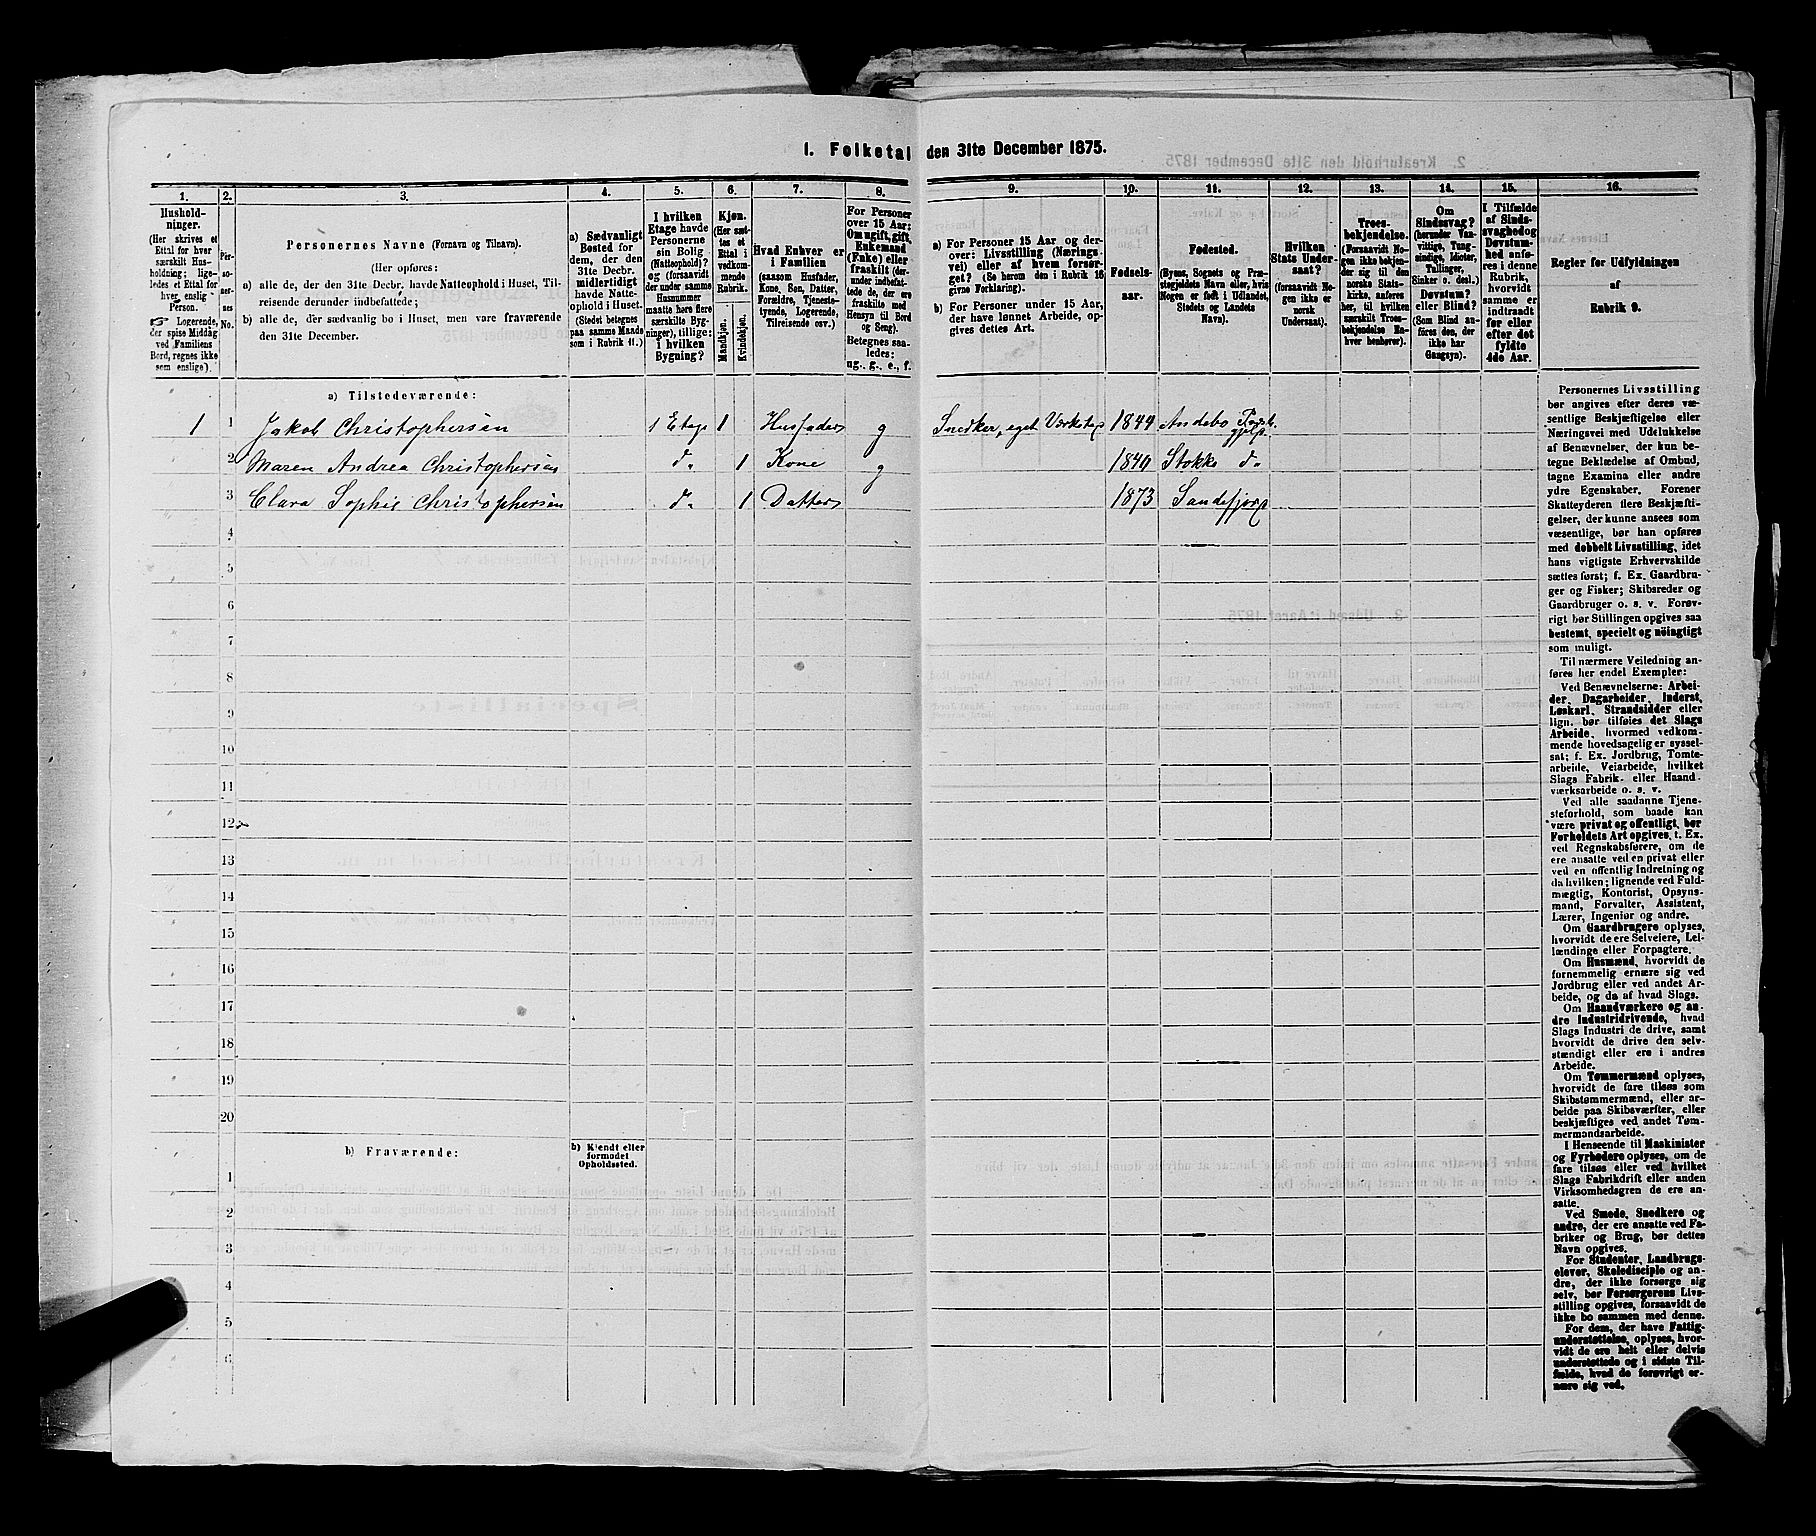 1. Folketal den 31te December 1875.
1. 2. 3. 4. 5. 6. 7. 8. 9. 10. 11. 12. 13. 14. 15. 16.
Hushold-
ninger.
(Her skrives et
Ettal for hver
særskilt Hus-
holdning; lige-
ledes et Ettal for
hver enslig
Person.
☞ Logerende,
der spise Middag
ved Familiens
Bord, regnes ikke
som enslige).
Per-
so-
ner-
nes
No.
Personernes Navne (Fornavn og Tilnavn).
(Her opføres:
a) alle de, der den 31te Decbr. havde Natteophold i Huset, Til-
reisende derunder indbefattede;
b) alle de, der sædvanlig bo i Huset, men vare fraværende
den 31te December.
a) Sædvanligt
Bosted for
dem, der den
31te Decbr.
midlertidigt
havde Natte-
ophold i Huset.
(Stedet betegnes
paa samme Maade
som i Rubrik 11.)
I hvilken
Etage havde
Personerne
sin Bolig
(Natteophold)?
og (forsaavidt
der under samme
Husnummer
maatte høre flere
særskilte Byg-
ninger), tillige:
I hvilken
Bygning?
Kjøn.
(Her sæt-
tes et
Ettal i
vedkom-
mende
Rubrik.
Mandkjøn.
Kvindekjøn.
Hvad Enhver er
i Familien
(saasom Husfader,
Kone, Søn, Datter,
Forældre, Tjeneste-
tyende, Logerende,
Tilreisende osv.)
For Personer
over 15 Aar:
Om ugift, gift,
Enkemand
(Enke) eller
fraskilt (der-
under indbefat-
tede de, der ere
fraskilte med
Hensyn til Bord
og Seng).
Betegnes saa-
ledes:
ug., g., e., f.
a) For Personer 15 Aar og der-
over: Livsstilling (Nærings-
vei) eller af hvem forsør-
get? (Se herom den i Rubrik 16
givne Forklaring).
b) For Personer under 15 Aar,
der have lønnet Arbeide, op-
gives dettes Art.
Fødsels-
aar.
Fødested.
(Byens, Sognets og Præ-
stegjeldets Navn eller, hvis
Nogen er født i Udlandet,
Stedets og Landets
Navn).
Hvilken
Stats Under-
saat?
(forsaavidt No-
gen ikke er
norsk
Undersaat).
Troes-
bekjendelse.
(Forsaavidt No-
gen ikke bekjen-
der sig til den
norske Stats-
kirke, anføres
her, til hvilken
særskilt Troes-
bekjendelse En-
hver henhører).
Om
Sindssvag?
(herunder Van-
vittige, Tung-
sindige, Idioter,
Tullinger,
Sinker o. desl.)
Døvstum?
eller Blind?
(Som Blind an-
føres den, der
ikke har
Gangsyn).
I Tilfælde
af Sinds-
svaghed og
Døvstum-
hed anfø-
res i denne
Rubrik,
hvorvidt
samme er
indtraadt
før eller
efter det
fyldte
4de Aar.
Regler for Udfyldningen
af
Rubrik 9.
a) Tilstedeværende:
1 1 Jakob Christophersen 1 Etage 1 Husfader g Snedker, eget Værksted 1844 Andebo Præste-
gjeld
2 Maren Andrea Christophersen do 1 Kone g 1840 Stokke do
3 Clara Sophie Christophersen do 1 Datter 1873 Sandefjord
4
5
6
7
8
9
10
11
12
13
14
15
16
17
18
19
20
b) Fraværende:
b) Kjendt eller
formodet
Opholdssted.
1
2
3
4
5
6
Personernes Livsstilling
bør angives efter deres væ-
sentlige Beskjæftigelse eller
Næringsvei med Udelukkelse
af Benævnelser, der kun be-
tegne Beklædelse af Ombud,
tagne Examina eller andre
ydre Egenskaber. Forener
Skatteyderen flere Beskjæfti-
gelser, der kunne ansees som
væsentlige, bør han opføres
med dobbelt Livsstilling, idet
hans vigtigste Erhvervskilde
sættes først; f. Ex. Gaardbru-
ger og Fisker; Skibsreder og
Gaardbruger o. s. v. Forøv-
rigt bør Stillingen opgives saa
bestemt, specielt og nöingtigt
som muligt.
Til nærmere Veiledning an-
føres her endel Exempler:
Ved Benævnelserne: Arbei-
der, Dagarbeider, Inderst,
Løskarl, Strandsidder eller
lign. bør tilføies det Slags
Arbeide, hvormed vedkom-
mende hovedsagelig er syssel-
sat; f. Ex. Jordbrug, Tomte-
arbeide, Veiarbeide, hvilket
Slags Fabrik- eller Haand-
værksarbeide o. s. v.
Ved alle saadanne Tjene-
steforhold, som baade kan
være privat og offentligt, bør
Forholdets Art opgives, t. Ex.
ved Regnskabsførere, om de
ere ansatte ved en privat eller
ved en offentlig Indretning og
da hvilken; lignende ved Fuld-
mægtig, Kontorist, Opsyns-
mand, Forvalter, Assistent,
Lærer, Ingeniør og andre.
Om Gaardbrugere oplyses,
hvorvidt de ere Selveiere, Lei-
lændinge eller Forpagtere.
Om Husmænd, hvorvidt de
fornemmelig ernære sig ved
Jordbrug eller ved andet Ar-
beide, og da af hvad Slags.
Om Haandværkere og an-
dre Industridrivende, hvad
Slags Industri de drive, samt
hvorvidt de drive den selv-
stændigt eller ere i andres
Arbeide.
Om Tømmermænd oplyses,
hvorvidt de fare tilsøs som
Skibstømmermænd, eller ar-
beide paa Skibsværfter, eller
beskjæftiges ved andet Tøm-
mermandsarbeide.
I Henseende til Maskinister
og Fyrbødere oplyses, om de
fare tilsøs eller ved hvilket
Slags Fabrikdrift eller anden
Virksomhedsgren de ere an-
satte.
Ved Smede, Snedkere og
andre, der ere ansatte ved Fa-
briker og Brug, bør dettes
Navn opgives.
For Studenter, Landbrugs-
elever, Skoledisciple og an-
dre, der ikke forsørge sig
selv, bør Forsørgerens Livs-
stilling opgives, forsaavidt de
ikke bo sammen med denne.
For dem, der have Fattig-
understøttelse, oplyses, hvor-
vidt de ere helt eller delvis
understøttede og i sidste Til-
fælde, hvad de forøvrigt er-
nære sig ved.